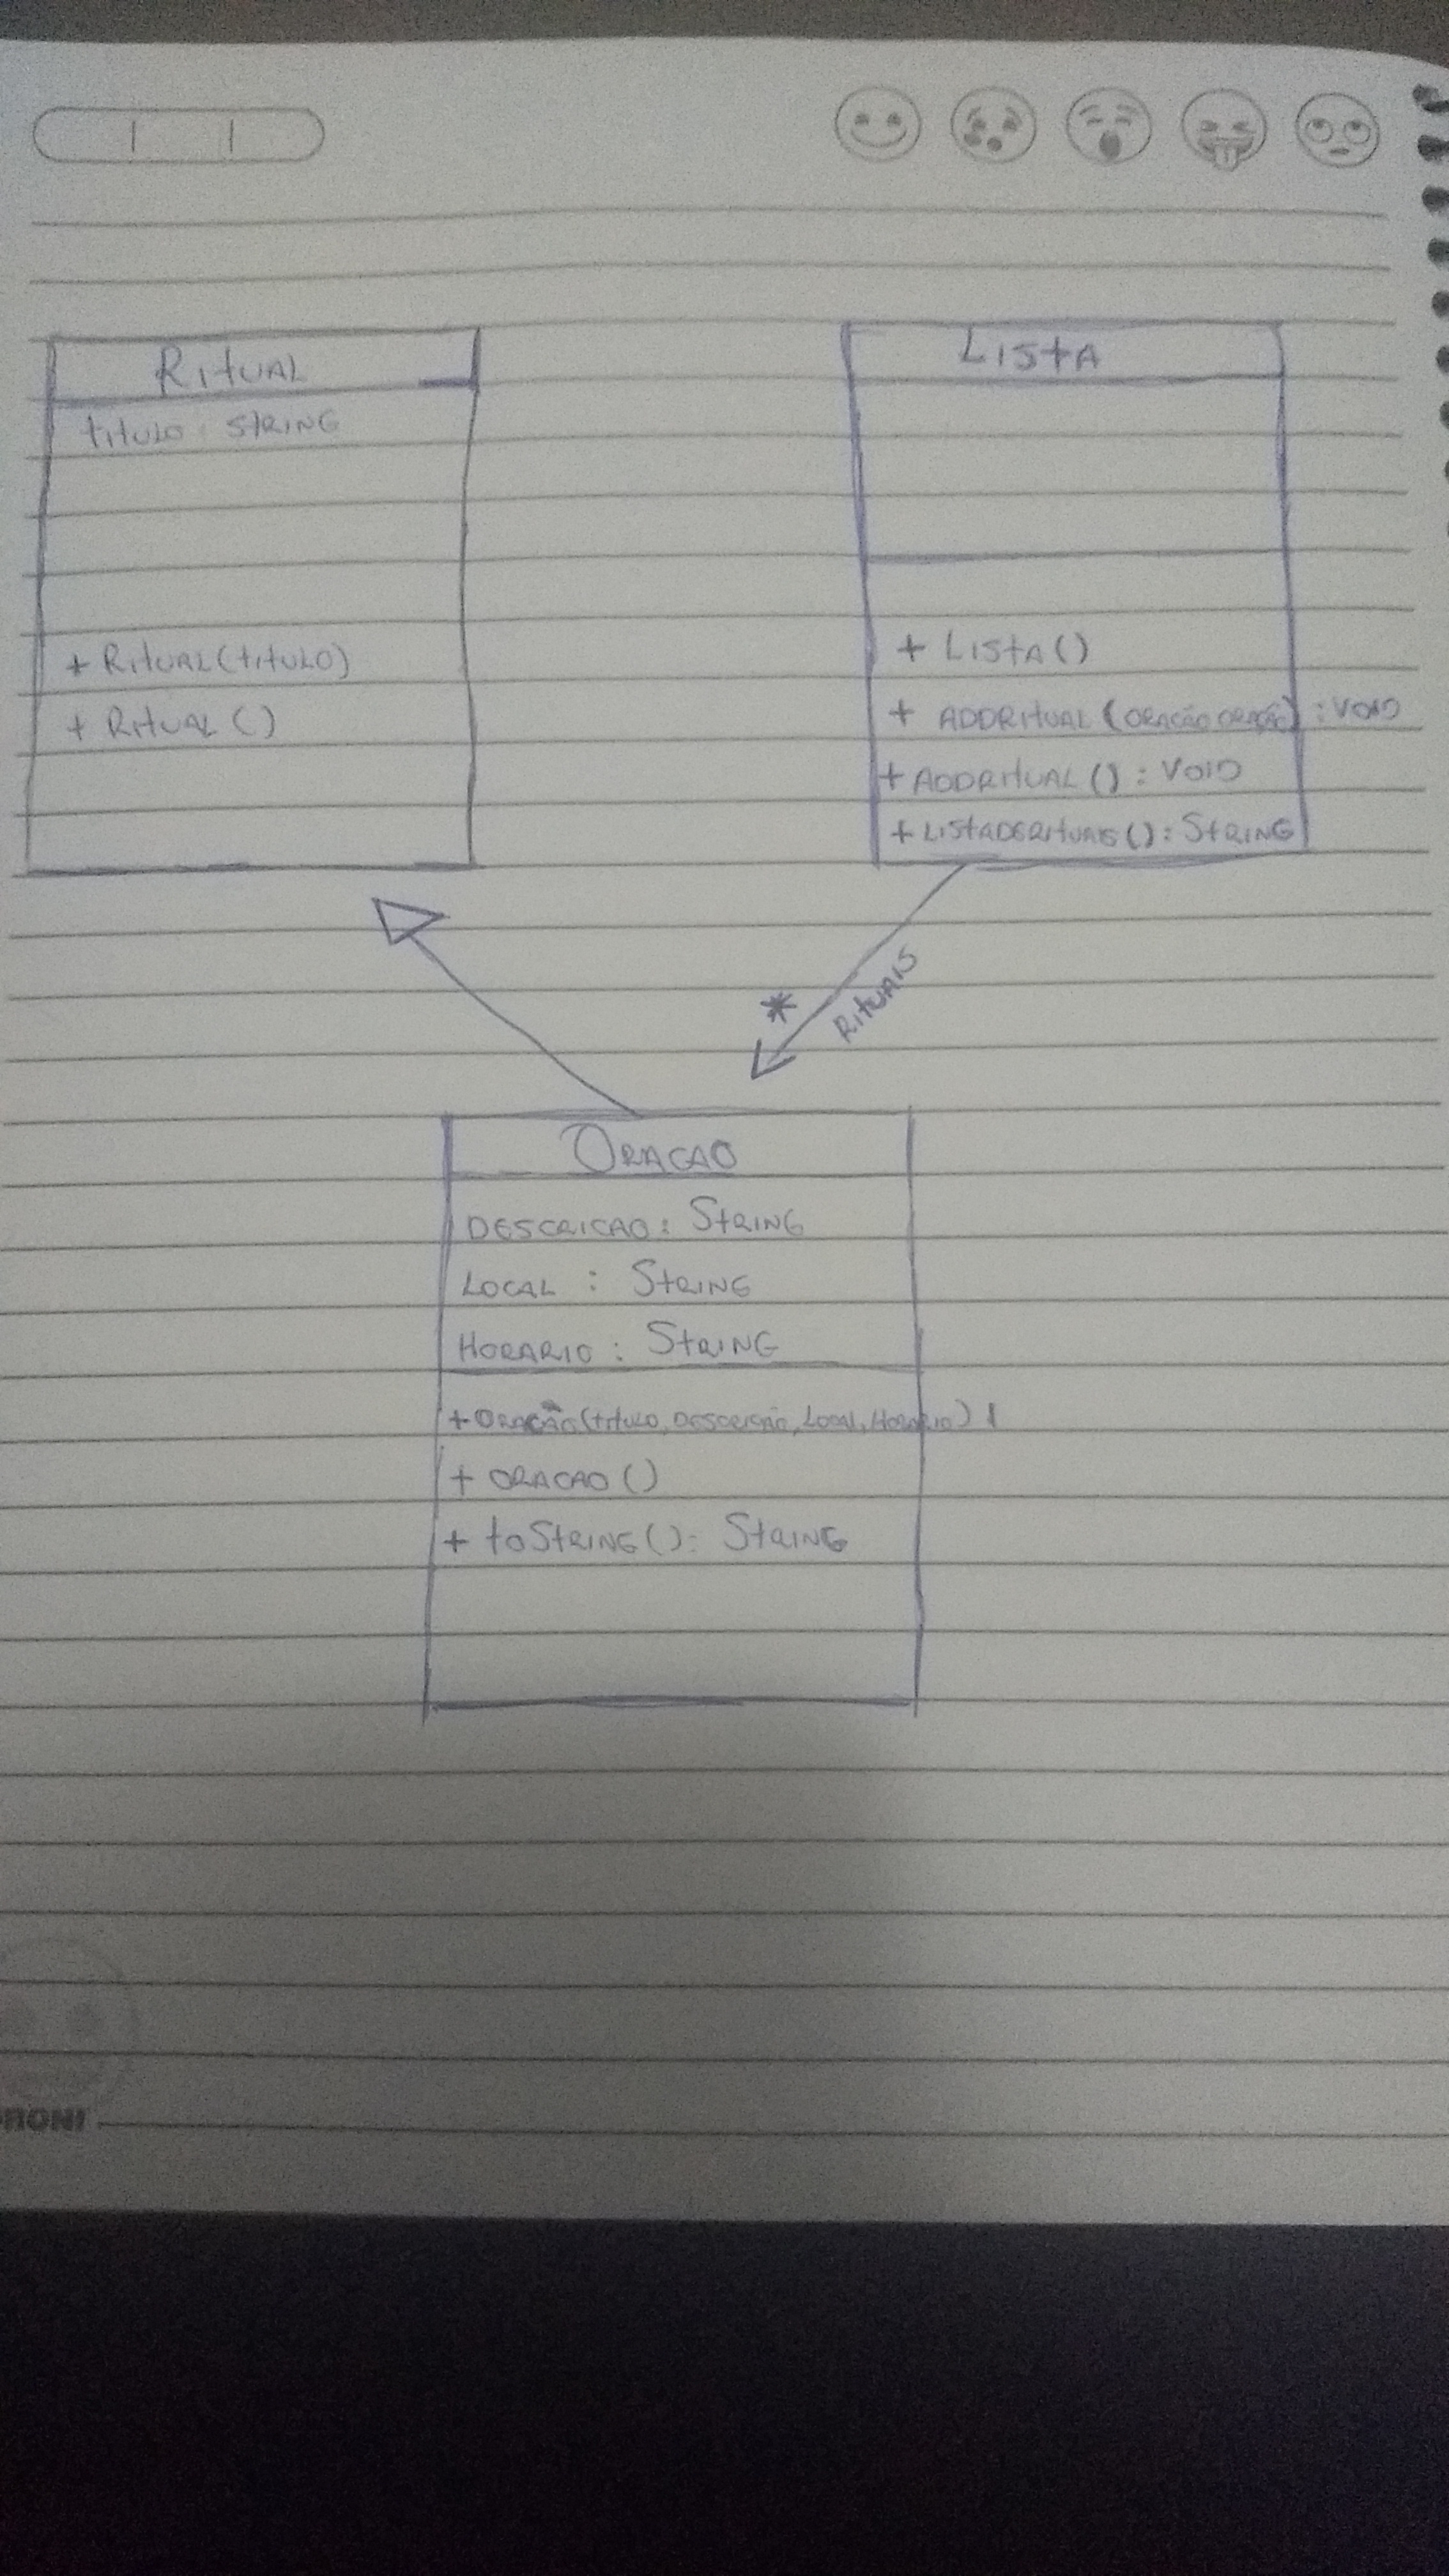 RITUAL
TITULO: STRING
+ RITUAL(TITULO)
+ RITUAL()
LISTA
+ LISTA()
+ ADDRITUAL (ORAÇÃO ORAÇÃO) : VOID
+ ADDRITUAL() : VOID
+ LISTADERITUAIS() : STRING
*
RITUAIS
ORACAO
DESCRICAO: STRING
LOCAL : STRING
HORARIO : STRING
+ ORAÇÃO(TITULO, DESCRIÇÃO, LOCAL, HORARIO)
+ ORACAO()
+ toSTRING(): STRING